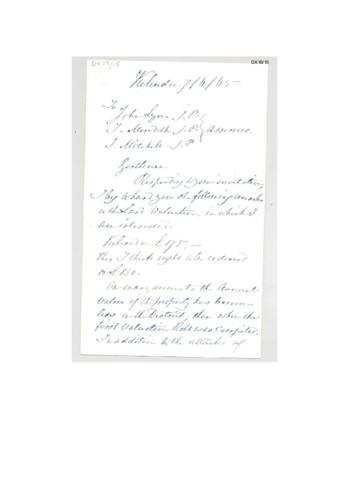 DX19/15
DX19/15
Kelvedon 7/4/65
To
John Lyne J.P.
T. Meredith J.P. Assessors
T. Mitchell J.P.
Gentlemen
Responding to your invitation,
I beg to hand you the following remarks
on the Land Valuation, in which I
am interested.
Kelvedon £175:-
This I think ought to be reduced
to £150.
On many accounts the Annual
value of the property has become
less in the District, than when the
first Valuation Roll was completed.
In addition to the attacks of